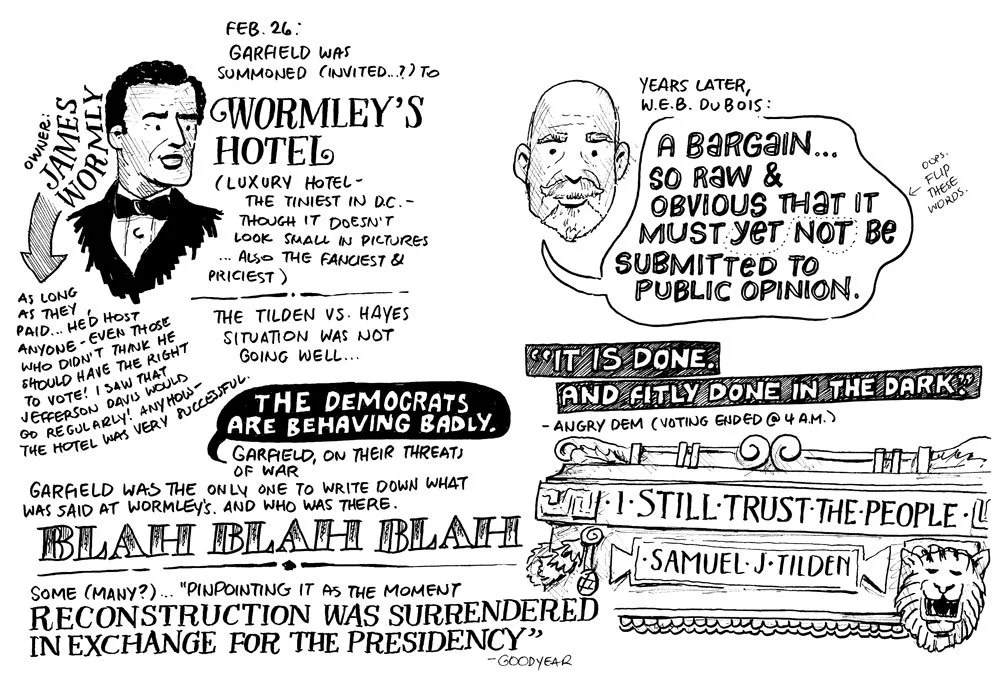 FEB. 26:
GARFIELD WAS
SUMMONED (INVITED...?) TO
WORMLEY'S
HOTEL
(LUXURY HOTEL-
THE TINIEST IN D.C.-
THOUGH IT DOESN'T
LOOK SMALL IN PICTURES
... ALSO THE FANCIEST &
PRICIEST)
OWNER:
JAMES
WORMLY
AS LONG
AS THEY
PAID... HE'D HOST
ANYONE - EVEN THOSE
WHO DIDN'T THINK HE
SHOULD HAVE THE RIGHT
TO VOTE! I SAW THAT
JEFFERSON DAVIS WOULD
GO REGULARLY! ANYHOW-
THE HOTEL WAS VERY SUCCESSFUL.
THE TILDEN VS. HAYES
SITUATION WAS NOT
GOING WELL...
THE DEMOCRATS
ARE BEHAVING BADLY.
GARFIELD, ON THEIR THREATS
OF WAR
GARFIELD WAS THE ONLY ONE TO WRITE DOWN WHAT
WAS SAID AT WORMLEY'S. AND WHO WAS THERE.
BLAH BLAH BLAH
SOME (MANY?)... "PINPOINTING IT AS THE MOMENT
RECONSTRUCTION WAS SURRENDERED
IN EXCHANGE FOR THE PRESIDENCY"
-GOODYEAR
YEARS LATER,
W.E.B. DUBOIS:
A BARGAIN...
SO RAW &
OBVIOUS THAT IT
MUST YET NOT BE
SUBMITTED TO
PUBLIC OPINION.
← OOPS.
FLIP
THESE
WORDS.
"IT IS DONE.
AND FITLY DONE IN THE DARK."
- ANGRY DEM (VOTING ENDED @ 4 A.M.)
·I·STILL·TRUST·THE·PEOPLE·
·SAMUEL·J·TILDEN